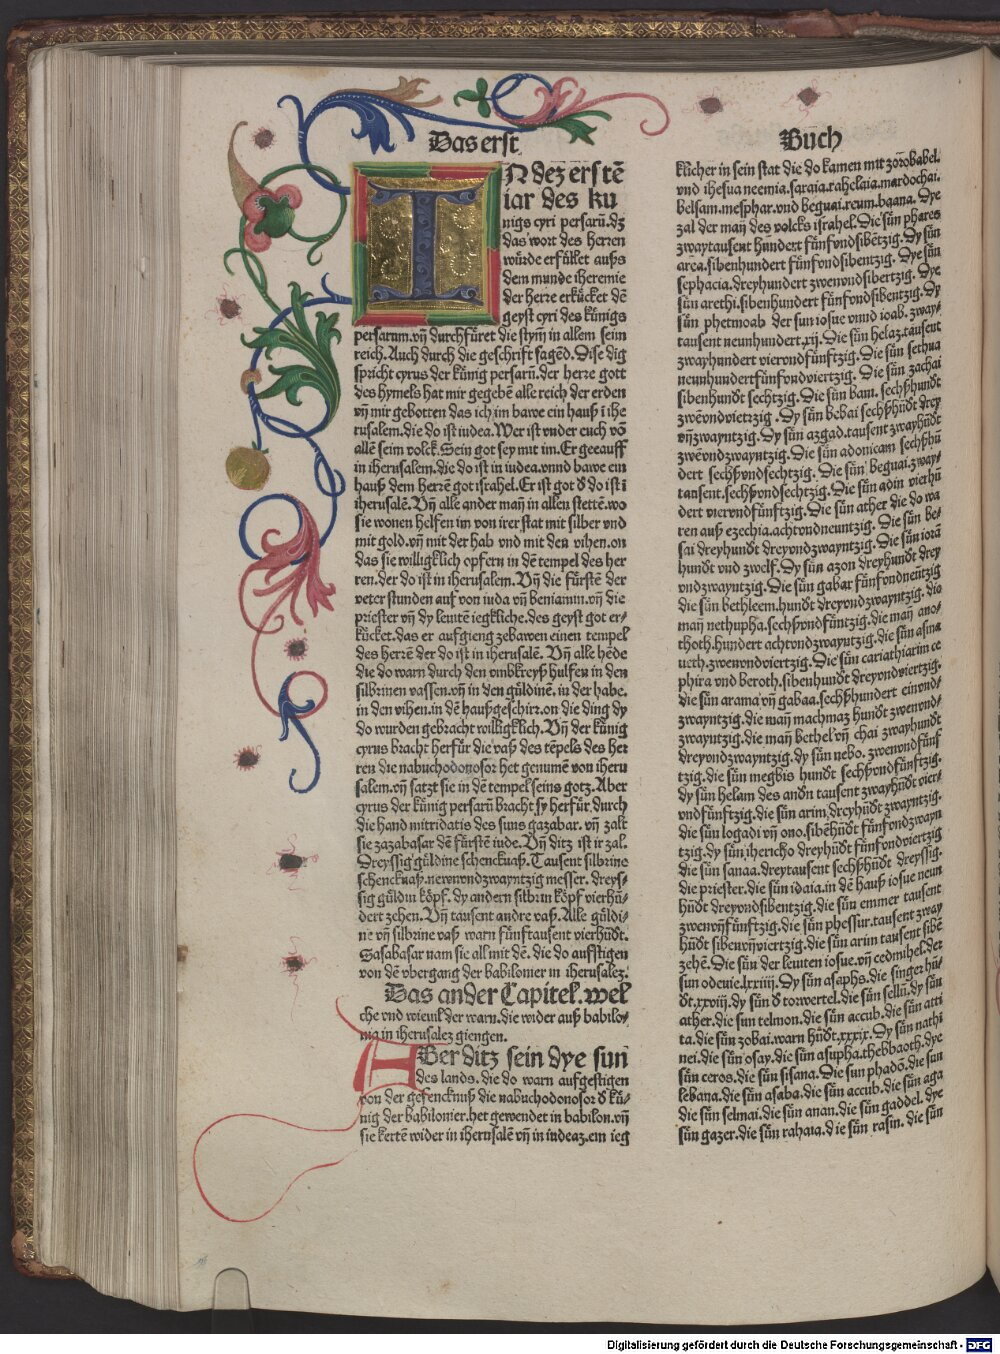 Das erst
Buch
IN dez erstē
iar des ku
nigs cyri persarū. dz
das wort des herren
würde erfüllet auſs
dem munde iheremie
der herre erkücket dē
geyst cyri des künigs
persarum. vñ durchfüret die stym̃ in allem seim
reich. Auch durch die geschrift sagēd. Dise dig
spricht cyrus der künig persarū. der herre gott
des hymels hat mir gegebē alle reich der erden
vñ mir gebotten das ich im bawe ein hauß ī ihe
rusalem. die do ist iudea. Wer ist vnder euch vō
allē seim volck. Sein got sey mit im. Er geeauff
in iherusalem. die do ist in iudea. vnnd bawe ein
hauß dem herrē got israhel. Er ist got d̄ do ist ī
iherusalē. Vñ alle ander mañ in allen stettē. wo
sie wonen helfen im von irer stat mit silber vnd
mit gold. vñ mit der hab vnd mit den vihen. on
das sie willigklich opfern in dē tempel des her
ren. der do ist in iherusalem. Vñ die fürstē der
veter stunden auf von iuda vñ beniamin. vñ die
priester vñ dy leuitē iegkliche. des geyst got er⸗
kücket. das er aufgieng zebawen einen tempel
des herrē der do ist in iherusalē. Vñ alle hēde
die do warn durch den vmbkreyß hulfen in den
silbrinen vassen. vñ in den güldinē. in der habe.
in den vihen. in dē haußgeschirr. on die ding dy
do wurden gebracht willigklich. Vñ der künig
cyrus bracht herfür die vaß des tēpels des her
ren die nabuchodonosor het genumē von iheru
salem. vñ satzt sie in dē tempel seins gotz. Aber
cyrus der künig persarū bracht sy herfür. durch
die hand mitridatis des suns gazabar. vñ zalt
sie zazabasar dē fürstē iude. Vñ ditz ist ir zal.
Dreyssig güldine schenckuaß. Tausent silbrine
schenckuaß. newnvndzwayntzig messer. dreys⸗
sig güldin köpf. dy andern silbrin köpf vierhū⸗
dert zehen. Vñ tausent andre vaß. Alle güldi⸗
ne vñ silbrine vaß warn fünftausent vierhūdt.
Sasabasar nam sie all mit dē. die do aufstigen
von dē vbergang der babilonier in iherusalez.
Das ander Capitel. wel
che vnd wieuil der warn. die wider auß babilo⸗
nia in iherusalez giengen.
ABer ditz sein dye sun
des lands. die do warn aufgestigen
von der gefencknuß die nabuchodonosor d̄ kü⸗
nig der babilonier. het gewendet in babilon. vñ
sie kertē wider in iherusalē vñ in iudeaz. ein ieg
klicher in sein stat die do kamen mit zorobabel.
vnd ihesua neemia. saraia. rahelaia. mardochai.
belsam. mesphar. vnd beguai. reum. baana. Dye
zal der mañ des volcks israhel. Die sün phares
zwaytausent hundert fünfvndsibentzig. Dy sün
area. sibenhundert fünfvndsibentzig. Dye sün
sephacia. dreyhundert zwenvndsibentzig. Dye
sün arethi. sibenhundert fünfvndsibentzig. Dy
sün phetmoab der sun iosue vnnd ioab. zway⸗
tausent neunhundert. xij. Die sün helaz. tausent
zwayhundert vierondfünftzig. Die sün sethua
neunhundertfünfvndviertzig. Die sün zachai
sibenhundert sechtzig. Die sün bani. sechßhūdt
zwēvndviertzig. Dy sün bebai sechßhūdt drey
vñzwayntzig. Dy sün azgad. tausent zwayhūdt
zwēvndzwayntzig. Die sün adonicam sechßhū
dert sechßvndsechtzig. Die sün beguai. zway⸗
tausent. sechßvndsechtzig. Die sün adin vierhū
dert viervndfünftzig. Die sün ather die do wa
ren auß ezechia. achtvndneuntzig. Die sün be⸗
sai dreyhundt dreyvndzwayntzig. Die sün iorā
hundt vnd zwelf. Dy sün azon dreyhundt drey
vndzwayntzig. Die sün gabar fünfvndneūtzig
die sün bethleem. hundt dreyvndzwayntzig. die
mañ nethupha. sechßvndfüntzig. die mañ ano⸗
thoth. hundert achtvndzwayntzig. die sün asma
ueth. zwenvndviertzig. Die sün cariathiarim ce
phira vnd beroth. sibenhundt dreyvndviertzig.
die sün arama vñ gabaa. sechßhundert einvnd⸗
zwayntzig. die mañ machmaz hundt zwenvnd⸗
zwayntzig. die mañ bethel vñ chai zwayhundt
dreyvndzwayntzig. dy sün nebo. zwenvndfünf
tzig. die sün megbis hundt sechßvndfünftzig.
dy sün helam des andn tausent zwayhūdt vier⸗
vndfünftzig. die sün arim dreyhūdt zwayntzig.
die sün logadi vñ ono. sibēhūdt fünfvndzwayn
tzig. dy sün ihericho dreyhūdt fünfvndviertzig
die sün sanaa. dreytausent sechßhūdt dreyssig.
die priester. die sün idaia. in dē hauß iosue neun
hūdt dreyvndsibentzig. die sün emmer tausent
zwenvñfünftzig. die sün phessur. tausent zway
hūdt sibenvñviertzig. die sün arim tausent sibē
zehē. Die sün der leuiten iosue. vñ cedmihel. der
sun odeuie. lxxiiij. Dy sün asaphs. die singer hū⸗
dt. xxviij. dy sün d̄ torwertel. die sün sellū. dy sün
ather. die sun telmon. die sün accub. die sün atti
ta. die sün zobai. warn hūdt. xxxix. Dy sün nathi
nei. die sün osay. die sün asupha. thebbaoth. dye
sün ceros. die sün sisana. Die sun phadō. die sun
lebana. die sün asaba. die sün accub. die sün aga
die sün selmai. die sün anan. die sün gaddel. dye
sün gazer. die sün rahaia. die sün rasin. die sün
Digitalisierung gefördert durch die Deutsche Forschungsgemeinschaft - DFG